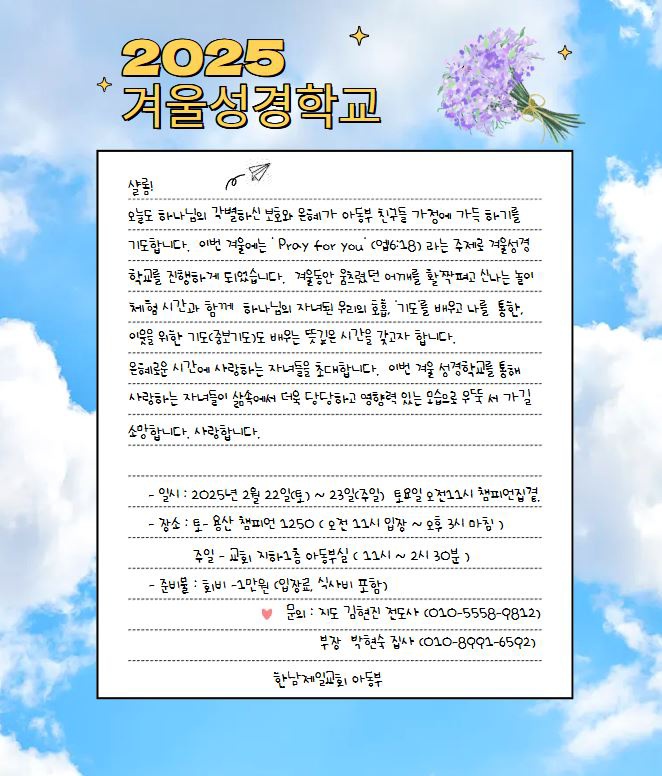 2025
겨울성경학교
샬롬!
오늘도 하나님의 각별하신 보호와 은혜가 아동부 친구들 가정에 가득 하기를
기도합니다. 이번 겨울에는 'Pray for you' (엡6:18) 라는 주제로 겨울성경
학교를 진행하게 되었습니다. 겨울동안 움츠렸던 어깨를 활짝펴고 신나는 놀이
체험 시간과 함께 하나님의 자녀된 우리의 호흡, '기도'를 배우고 나를 통한,
이웃을 위한 기도(중보기도)도 배우는 뜻깊은 시간을 갖고자 합니다.
은혜로운 시간에 사랑하는 자녀들을 초대합니다. 이번 겨울 성경학교를 통해
사랑하는 자녀들이 삶속에서 더욱 당당하고 영향력 있는 모습으로 우뚝 서 가길
소망합니다. 사랑합니다.
- 일시 : 2025년 2월 22일(토) ~ 23일(주일) 토요일 오전11시 챔피언집결.
- 장소 : 토- 용산 챔피언 1250 ( 오전 11시 입장 ~ 오후 3시 마침 )
주일 - 교회 지하1층 아동부실 ( 11시 ~ 2시 30분 )
- 준비물 : 회비 -1만원 (입장료, 식사비 포함)
문의 : 지도 김현진 전도사 (010-5558-9812)
부장 박현숙 집사 (010-8991-6592)
한남제일교회 아동부